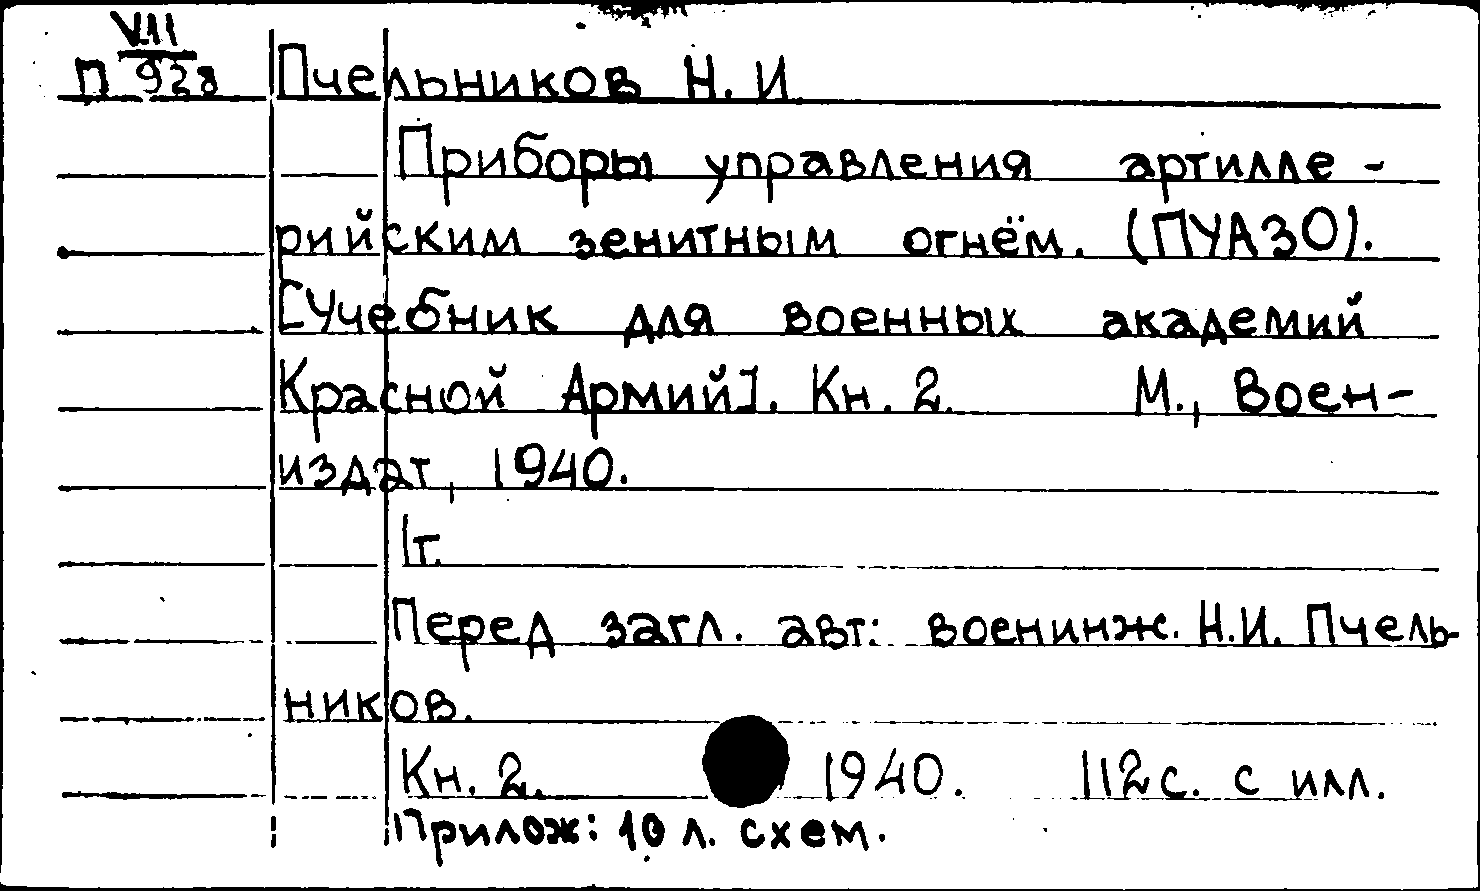 VII
П 928
Пчельников Н. И
Приборы управления артилле-
рийским зенитным огнём. (ПУАЗО).
[Учебник для военных академий
Красной Армий]. Кн. 2. М., Воен-
издат, 1940.
1т.
Перед загл. авт: военинж. Н.И. Пчель-
ников.
Кн. 2. 1940. 112 с. с илл.
Прилож: 10 л. схем.